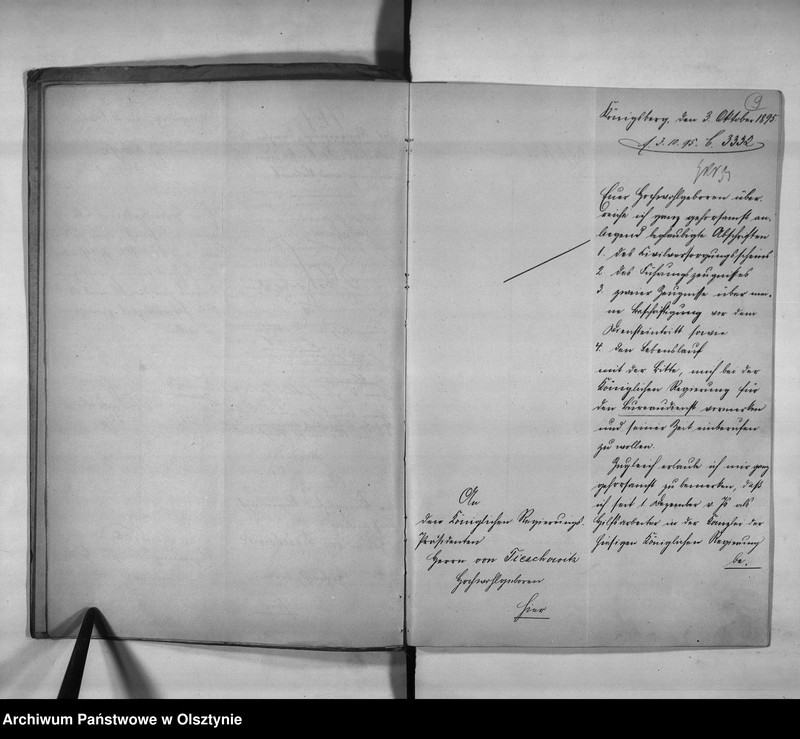 9
Königsberg, den 3. Oktober 1895
3. 10. 95. C. 3332
Euer Hochwohlgeboren über-
reiche ich ganz gehorsamst an-
liegend beglaubigte Abschriften
1. des Civilversorgungsscheins
2. des Führungszeugnisses
3. zweier Zeugnisse über mei-
ne Beschäftigung vor dem
Diensteintritt sowie
4. den Lebenslauf
mit der Bitte, mich bei der
Königlichen Regierung für
den Bureaudienst vormerken
und seiner Zeit einberufen
zu wollen.
Zugleich erlaube ich mir ganz
gehorsamst zu bemerken, daß
ich seit 1. Dezember v. Js als
Hilfsarbeiter in der Kanzlei der
hiesigen Königlichen Regierung
be.
An
den Königlichen Regierungs-
Präsidenten
Herrn von Tieschowitz
Hochwohlgeboren
hier
Archiwum Państwowe w Olsztynie